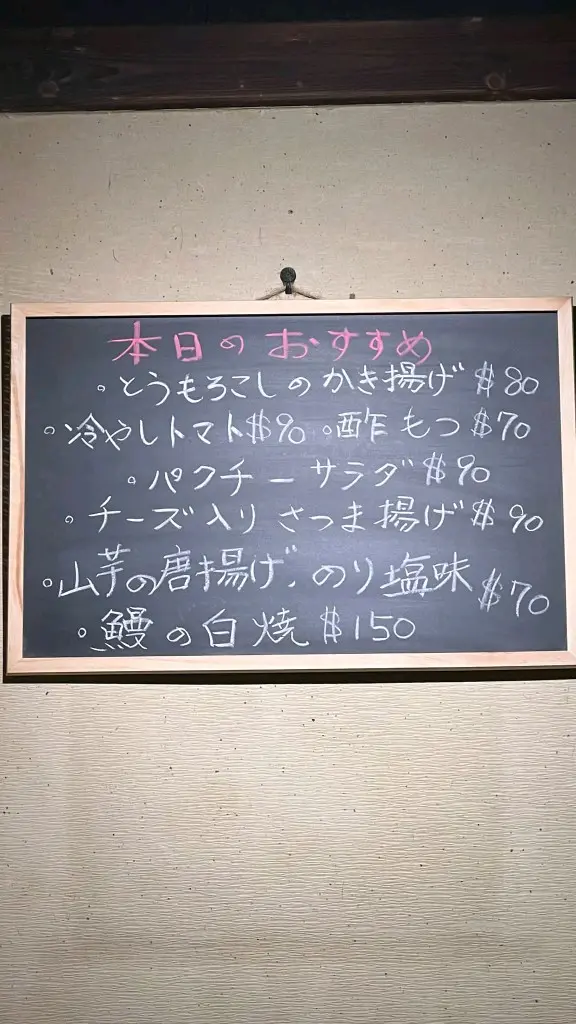 本日のおすすめ
。とうもろこしのかき揚げ $80
。冷やしトマト$90 。酢もつ $70
。パクチーサラダ $90
。チーズ入りさつま揚げ $90
。山芋の唐揚げ、のり塩味 $70
。鰻の白焼 $150